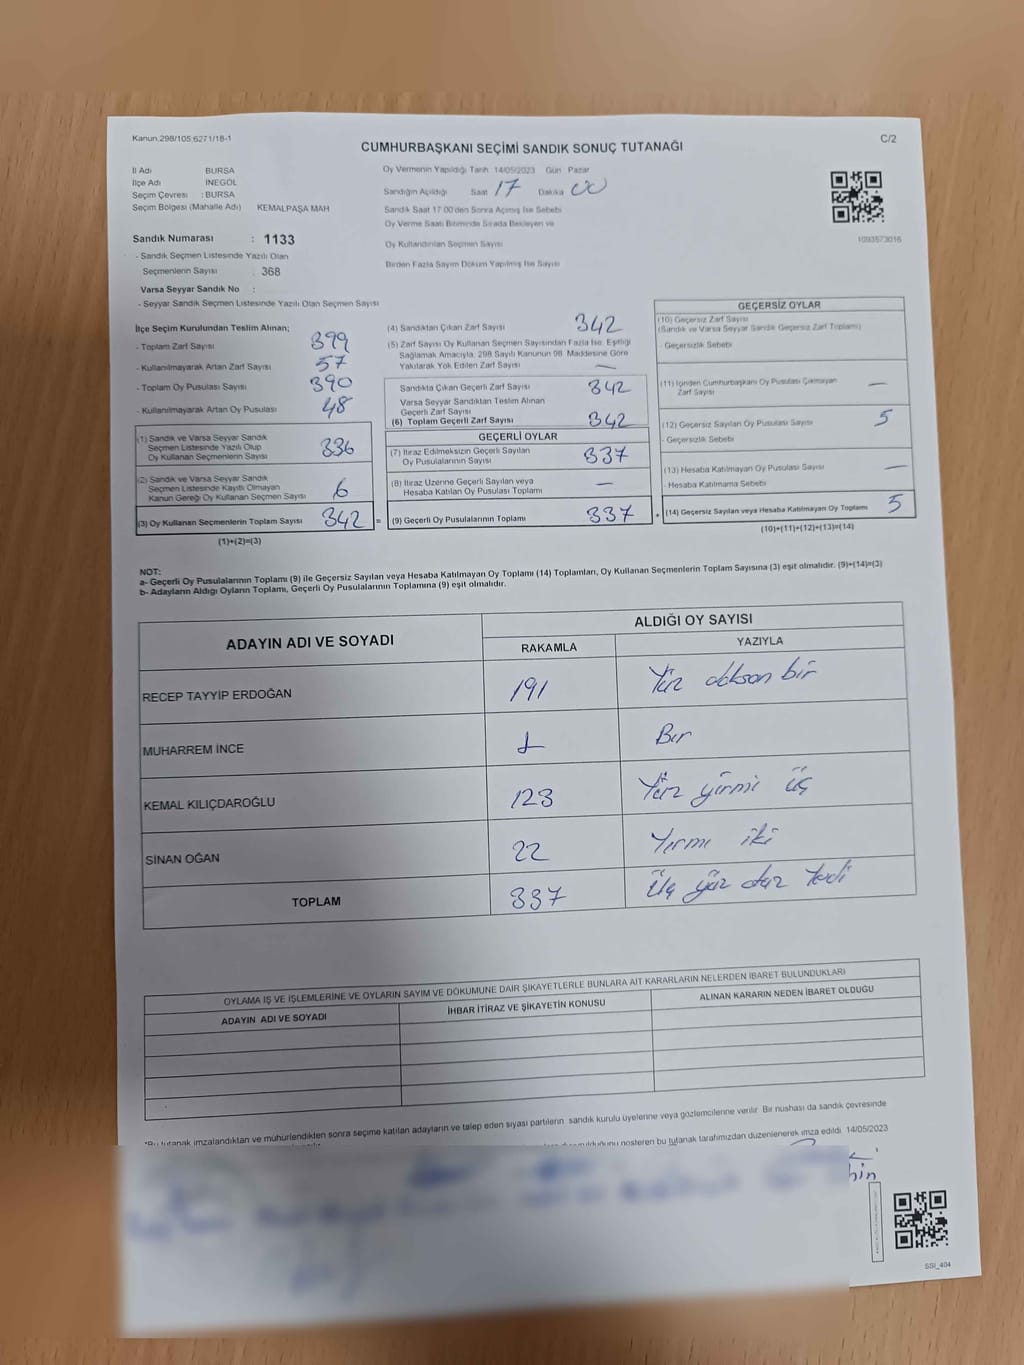 Kanun:298/105;6271/18-1
C/2
CUMHURBAŞKANI SEÇİMİ SANDIK SONUÇ TUTANAĞI
İl Adı BURSA
İlçe Adı İNEGÖL
Seçim Çevresi : BURSA
Seçim Bölgesi (Mahalle Adı) KEMALPAŞA MAH
Oy Vermenin Yapıldığı Tarih 14/05/2023 Gün Pazar
Sandığın Açıldığı Saat 17 Dakika 00
Sandık Saat 17:00'den Sonra Açımış İse Sebebi
Oy Verme Saati Bitiminde Sırada Bekleyen ve
Oy Kullandırılan Seçmen Sayısı
Birden Fazla Sayım Döküm Yapılmış İse Sayısı
1093573016
Sandık Numarası : 1133
- Sandık Seçmen Listesinde Yazılı Olan
Seçmenlerin Sayısı : 368
Varsa Seyyar Sandık No :
- Seyyar Sandık Seçmen Listesinde Yazılı Olan Seçmen Sayısı
İlçe Seçim Kurulundan Teslim Alınan;
- Toplam Zarf Sayısı 399
- Kullanılmayarak Artan Zarf Sayısı 57
- Toplam Oy Pusulası Sayısı 390
- Kullanılmayarak Artan Oy Pusulası 48
(1) Sandık ve Varsa Seyyar Sandık
Seçmen Listesinde Yazılı Olup
Oy Kullanan Seçmenlerin Sayısı 336
(2) Sandık ve Varsa Seyyar Sandık
Seçmen Listesinde Kayıtlı Olmayan
Kanun Gereği Oy Kullanan Seçmen Sayısı 6
(3) Oy Kullanan Seçmenlerin Toplam Sayısı 342 =
(1)+(2)=(3)
(4) Sandıktan Çıkan Zarf Sayısı 342
(5) Zarf Sayısı Oy Kullanan Seçmen Sayısından Fazla İse, Eşitliği
Sağlamak Amacıyla, 298 Sayılı Kanunun 98. Maddesine Göre
Yakılarak Yok Edilen Zarf Sayısı —
Sandıkta Çıkan Geçerli Zarf Sayısı 342
Varsa Seyyar Sandıktan Teslim Alınan
Geçerli Zarf Sayısı
(6) Toplam Geçerli Zarf Sayısı 342
GEÇERLİ OYLAR
(7) İtiraz Edilmeksizin Geçerli Sayılan
Oy Pusulalarının Sayısı 337
(8) İtiraz Üzerine Geçerli Sayılan veya
Hesaba Katılan Oy Pusulası Toplamı —
(9) Geçerli Oy Pusulalarının Toplamı 337 +
GEÇERSİZ OYLAR
(10) Geçersiz Zarf Sayısı
(Sandık ve Varsa Seyyar Sandık Geçersiz Zarf Toplamı)
- Geçersizlik Sebebi
(11) İçinden Cumhurbaşkanı Oy Pusulası Çıkmayan
Zarf Sayısı —
(12) Geçersiz Sayılan Oy Pusulası Sayısı 5
- Geçersizlik Sebebi
(13) Hesaba Katılmayan Oy Pusulası Sayısı —
- Hesaba Katılmama Sebebi
(14) Geçersiz Sayılan veya Hesaba Katılmayan Oy Toplamı 5
(10)+(11)+(12)+(13)=(14)
NOT:
a- Geçerli Oy Pusulalarının Toplamı (9) ile Geçersiz Sayılan veya Hesaba Katılmayan Oy Toplamı (14) Toplamları, Oy Kullanan Seçmenlerin Toplam Sayısına (3) eşit olmalıdır. (9)+(14)=(3)
b- Adayların Aldığı Oyların Toplamı, Geçerli Oy Pusulalarının Toplamına (9) eşit olmalıdır.
ADAYIN ADI VE SOYADI
ALDIĞI OY SAYISI
RAKAMLA YAZIYLA
RECEP TAYYİP ERDOĞAN 191 Yüz doksan bir
MUHARREM İNCE 1 Bir
KEMAL KILIÇDAROĞLU 123 Yüz yirmi üç
SİNAN OĞAN 22 Yirmi iki
TOPLAM 337 Üç yüz otuz Yedi
OYLAMA İŞ VE İŞLEMLERİNE VE OYLARIN SAYIM VE DÖKÜMÜNE DAİR ŞİKAYETLERLE BUNLARA AİT KARARLARIN NELERDEN İBARET BULUNDUKLARI
ADAYIN ADI VE SOYADI İHBAR İTİRAZ VE ŞİKAYETİN KONUSU ALINAN KARARIN NEDEN İBARET OLDUĞU
*Bu tutanak imzalandıktan ve mühürlendikten sonra seçime katılan adayların ve talep eden siyasi partilerin sandık kurulu üyelerine veya gözlemcilerine verilir. Bir nüshası da sandık çevresinde
olduğunu gösteren bu tutanak tarafımızdan düzenlenerek imza edildi. 14/05/2023
hin
SSI_404